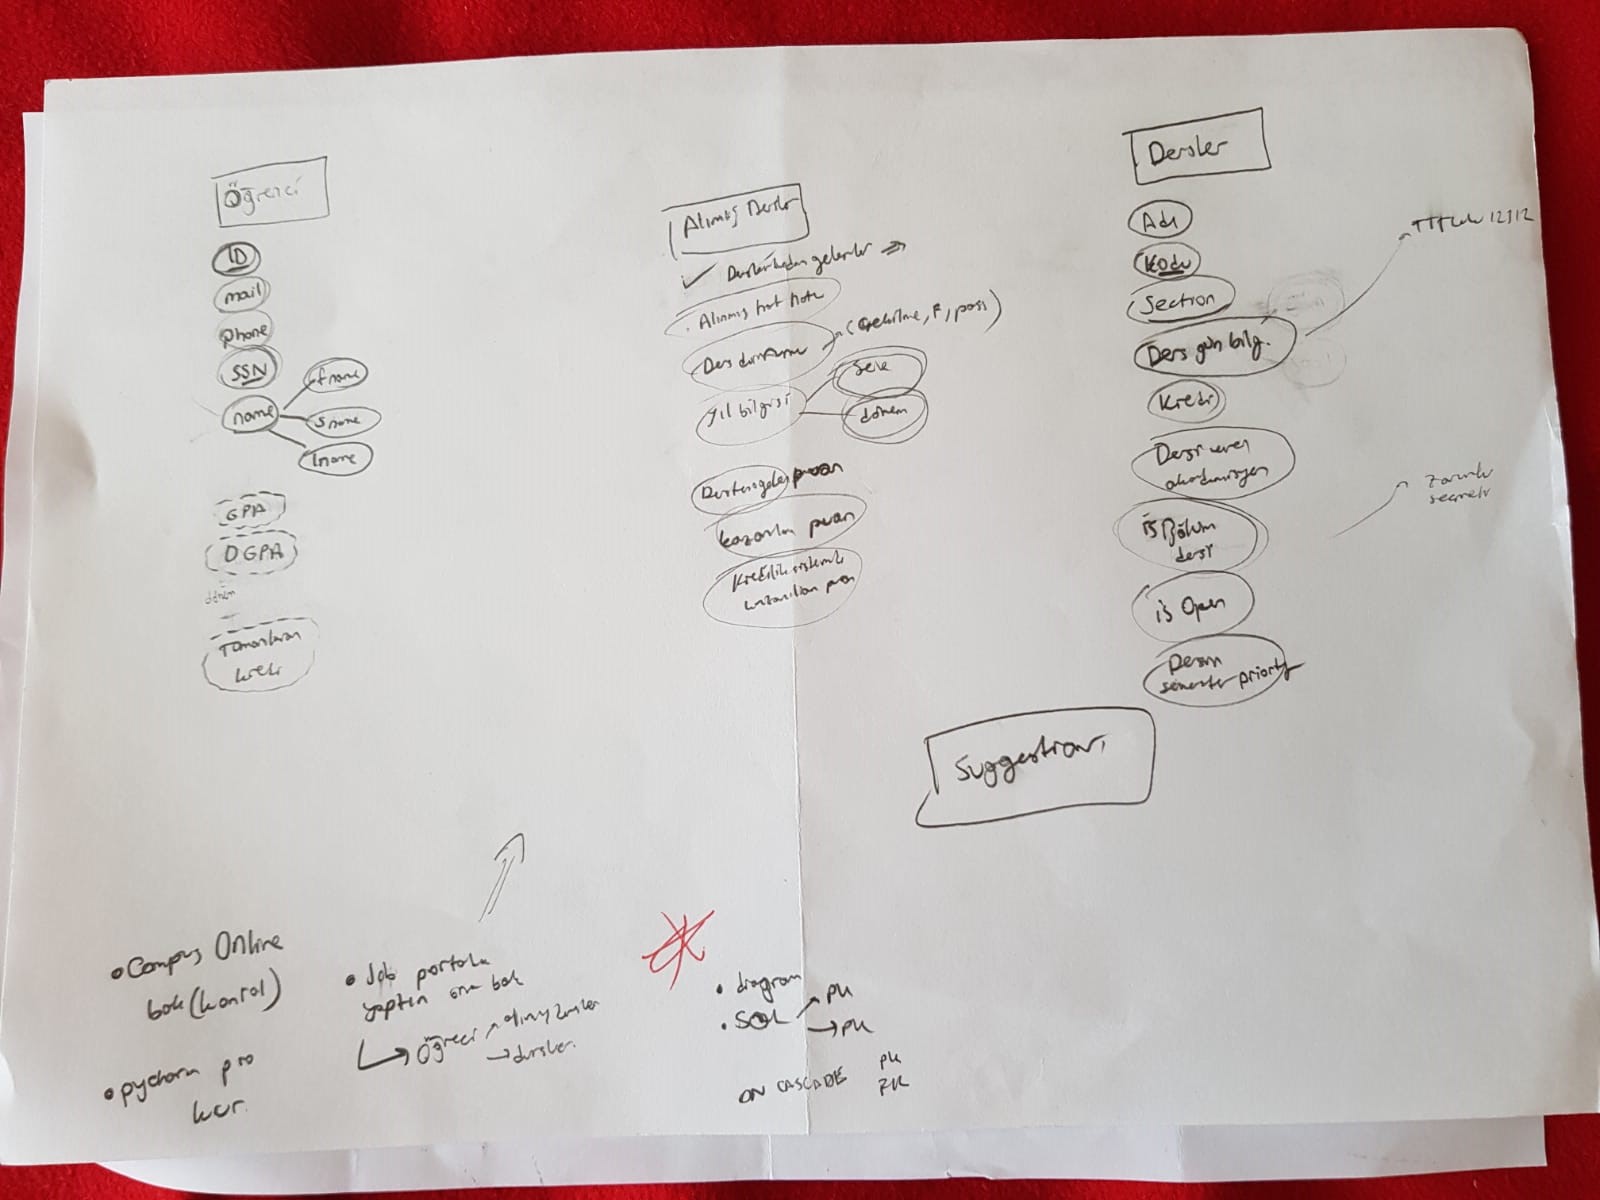 Öğrenci
ID
mail
phone
SSN
name
fname
sname
lname
GPA
DGPA
dönem
Tamamlanan
kredi
Alınmış Dersler
gelenler
Alınmış harf notu
Ders durumu
(Çekilme, F, pass)
yıl bilgisi
sene
dönem
Dersten gelen puan
kazanılan puan
Kredilik sistemde
kazanılan puan
Dersler
Adı
Kodu
Section
Ders gün bilg.
TTTWW 12312
Kredi
Dersi veren
akademisyen
is Bölüm
dersi
zorunlu
seçmeli
is Open
Dersin
semester priority
Suggestions
• Campus Online
bak (kontrol)
• pycharm pro
kur.
• Job portala
yaptın ona bak
Öğreci
dersler
• diagram
• SQL
PK
PK
ON CASCADE
PK
FK